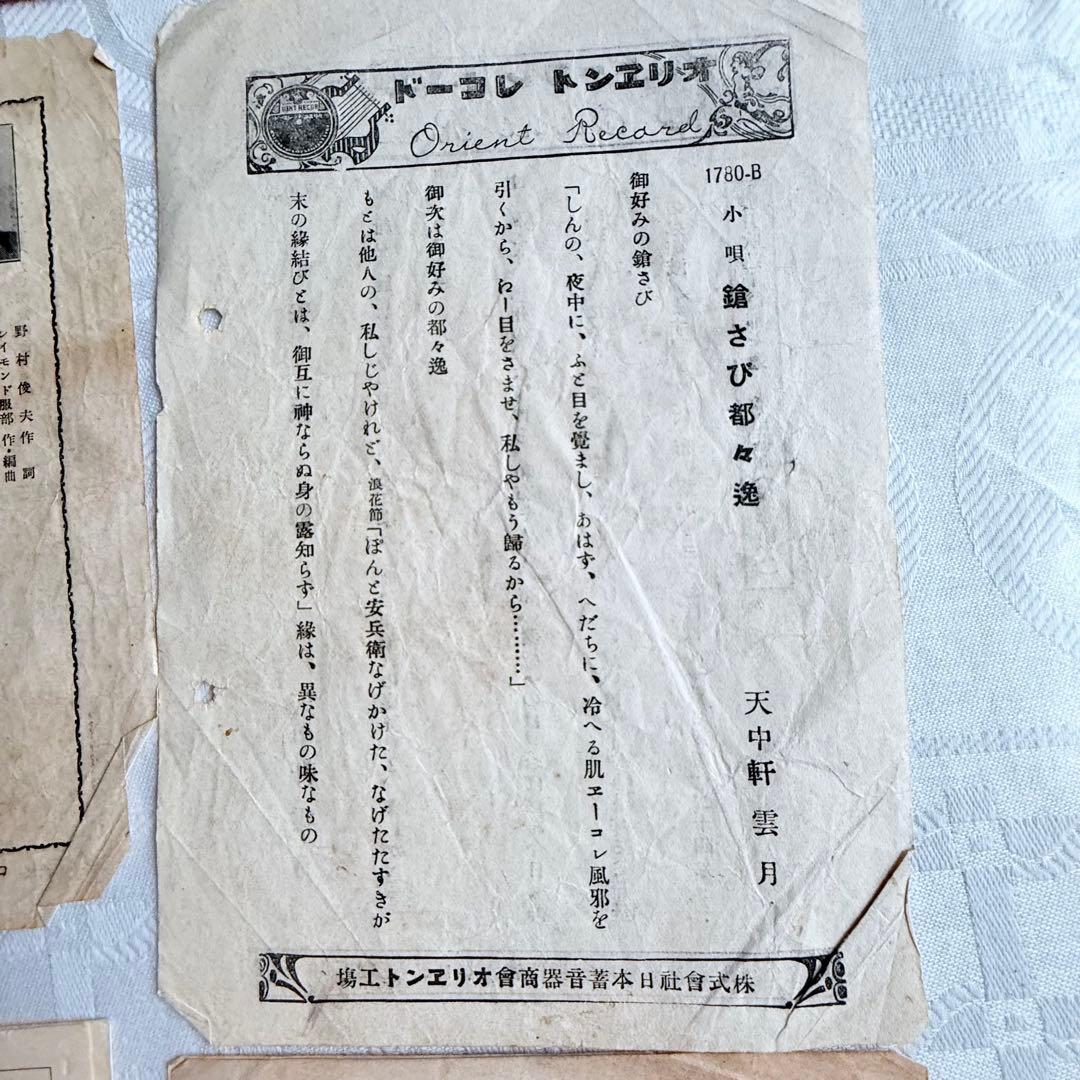 オリヱントレコード
Orient Record
1780-B
小唄 鎗さび都々逸
天中軒雲月
御好みの鎗さび
「しんの、夜中に、ふと目を覺まし、あはず、へだちに、冷へる肌ヱーコレ風邪を
引くから、わー目をさませ、私しやもう歸るから………」
御次は御好みの都々逸
もとは他人の、私しじやけれど、浪花節「ぽんと安兵衛なげかけた、なげたたすきが
末の緣結びとは、御互に神ならぬ身の露知らず」緣は、異なもの味なもの
株式會社日本蓄音器商會オリヱント工塲
野村俊夫作詞
レイモンド服部作・編曲